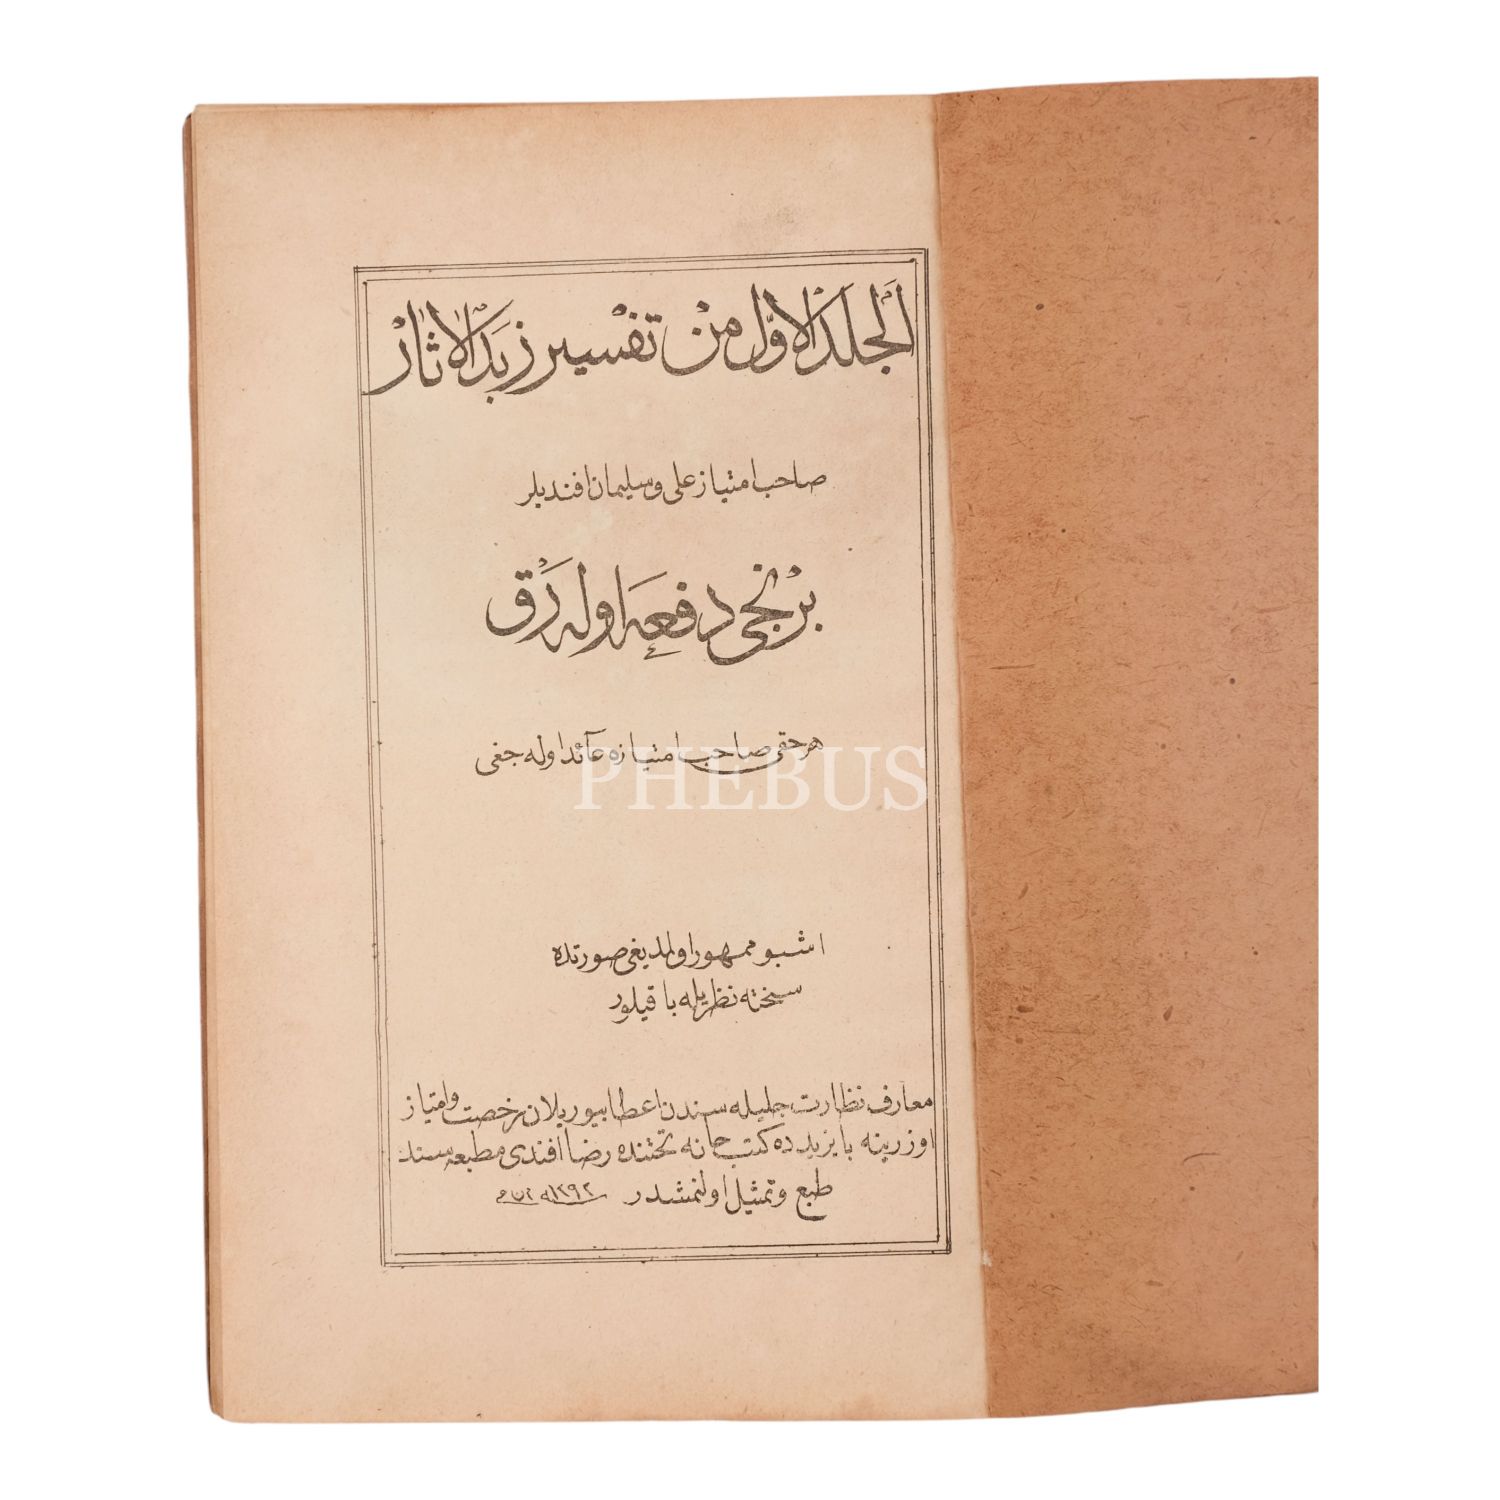 اَلْجلد الاوّل مِنْ تفْسير زبدَ الاثار
صاحب امتياز على و سليمان افنديلر
برنجى دفعه اوله رق
هر حقى صاحب امتيازه عائد اوله جغى
PHEBUS
اشبو ممهور اولمديغى صورتده
سخته نظريله باقيلور
معارف نظارت جليله سندن اعطا بيوريلان رخصت و امتياز
اوزرينه بايزيدده كتبخانه تحتنده رضا افندى مطبعه سنده
طبع و تمثيل اولنمشدر